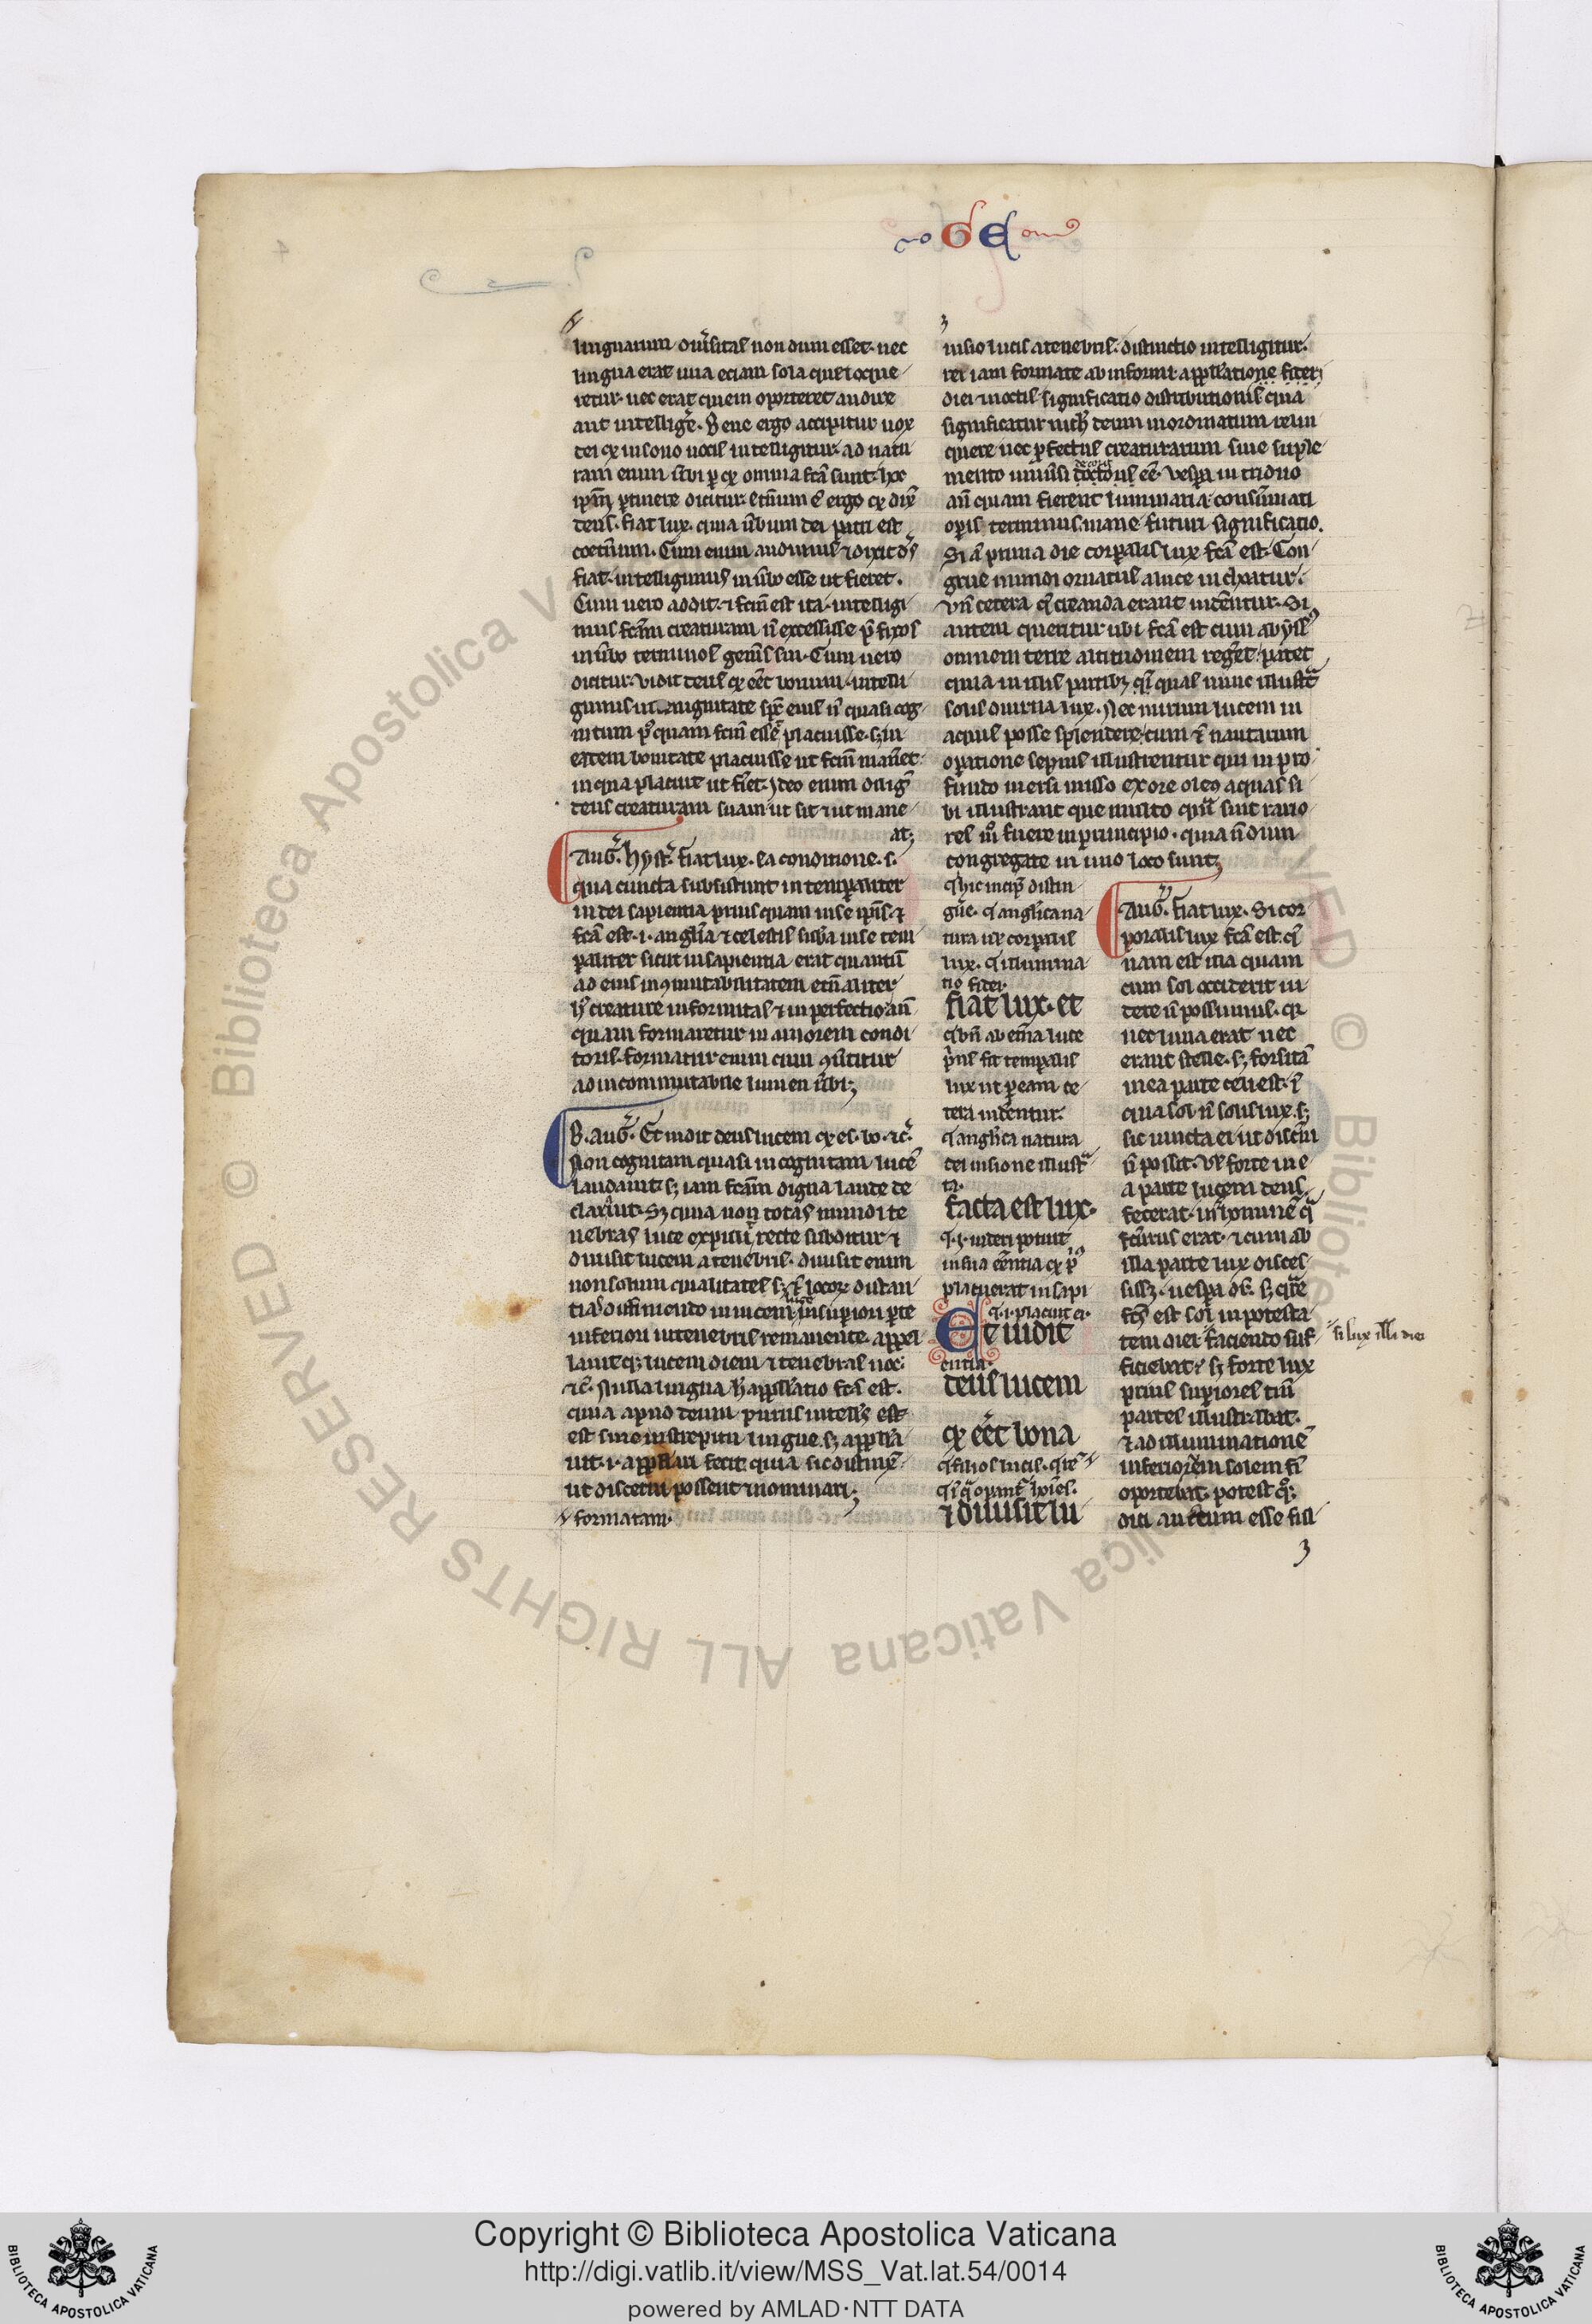 GE
linguarum diu͛sitas non dum esset. nec
lingua erat una eciam sola que loque
retur. nec erat quem oporteret audire
aut intellige͛. Bene ergo accipitur uox
dei qđ in sono uocis intelligitur. ad natu
ram enim ūbi p qđ omnia fc̄a sunt. hoc
deus. fiat lux. quia ūbum dei patri est
coet̄num. Cum enim audimus ⁊ dixit d̄s
fiat. intelligimus in ūbo esse ut fieret.
Cum uero addit. ⁊ fc̄m est ita. intelligi
mus fc̄am creaturam n̄ excessisse p̄fixos
in ūbo terminos gene͛is sui. Cum uero
dicitur. uidit deus qđ eēt bonum. intelli
gimus in benignitate sp̄c eius n̄ quasi cog
nitum p9quam fc̄m esset placuisse. sʒ in
eadem bonitate placuisse ut fc̄m maneret
in qua placuit ut fieret. Ideo enim dilig͛
deus creaturam suam ut sit ⁊ ut mane
at;
Aug͛. hyst͛. fiat lux. Ea condicione. s.
qua cuncta subsistunt intemporaliter
in dei sapientia. priusquam in se ip̄is. ⁊
fc̄a est. i. angl̄ica ⁊ celestis sub̄a in se tem
poraliter sicut in sapientia erat quantū
ad eius inɔmutabilitatem et̄naliter
h̄ creature informitas ⁊ inperfectio an̄
quam formaretur in amorem condi
toris. formatur enim cum ɔūtitur
ad incommutabile lumen ūbi;
B. Aug͛. Et uidit deus lucem qđ es. bo. ⁊c͛.
Non cognitam quasi incognitam lucē
laudauit. sʒ iam fc̄am digna laude de
clarauit. Sʒ quia non totas mundi te
nebras luce expulit. recte subditur. ⁊
diuisit lucem a tenebris. diuisit enim
non solum qualitates sʒ ⁊ locoꝝ distan
tias diffiniendo in lucem in superiori parte
inferiori in tenebris remanente. appel
lauitqʒ lucem diem ⁊ tenebras noc
⁊c͛. Nulla lingua h̄ appellatio fc̄a est.
quia apud deum purus intellectus est
est sine instrepitu lingue. sʒ appella
uit. i. appellari fecit. quia sic distinx̄
ut discerni possent ⁊ nominari;
formatam.
uisio lucis a tenebris. distinctio intelligitur.
rei iam formate ab informi. appellatione fiter
diei ⁊ noctis significatio distributionis quia
significatur nich̄ deum inordinatum relin
quere nec p̄fectus creaturarum siue suple
mento uniūsi decoris eē. Vespa in triduo
an̄quam fierent luminaria. consūmati
operis terminus. mane futuri significatio.
Si ā prima die corpalis lux fc̄a est. Con
grue mundi ornatus a luce inchoatur.
vn̄ cetera q̄ creanda erant uidērentur. Si
autem queritur ubi fc̄a est cum abyssus
omnem terre altitudinem tegeret. patet
quia in illis partibʒ q̄s nunc illustrat
solis diurna lux. Nec mirum lucem in
aquis posse splendere. cum ⁊ nautarum
operatione sepius illustrentur qui in pro
fundo mersi misso ex ore oleo aquas si
bi illustrant que multo q̄m sint rario
res in fuere in principio. quia n̄ dum
congregate in uno loco sunt;
hic incip̄ distin
gue͛. angl̄icana
tura ul̄ corpalis
lux. illumina
tio fidei.
fiat lux. et
bn̄ ab et̄na luce
p̄us fit tempalis
lux ut p eam ce
tera uidērentur.
angl̄ica natura
dei uisione illustra
ta.
facta est lux.
.i. uideri potuit
in sua essentia qđ p9
placuerat in sapi
.i. placuit ei.
Et uidit
entia.
deus lucem
qđ eēt bona
filios lucis.
opant͛ hoīes.
⁊ diuisit lu
Aug͛. fiat lux. Si cor
poralis lux fc̄a est. q̄
nam est illa quam
cum sol occiderit ui
dere n̄ possumus. qr
nec luna erat nec
erant stelle. sʒ forsitā
in ea parte celi est. ī
qua sol n̄ solis lux. sʒ
sic iuncta ei ut discerni
n̄ possit. Vel forte in e
a parte lucem deus
fecerat. in qua hominē
fc̄urus erat. ⁊ cum ab
illa parte lux disces
sissʒ. uespa dr̄. sʒ quare
fc̄s est sol in potesta
tem diei. faciendo suf
ficiebat. sʒ forte lux
prius superiores tn̄
partes illustrabat.
⁊ ad illuminationē
inferiorem solem fi
oportebat. potest qđ;
dici auctum esse fuli
si lux illi diei
Copyright © Biblioteca Apostolica Vaticana
http://digi.vatlib.it/view/MSS_Vat.lat.54/0014
powered by AMLAD·NTT DATA
BIBLIOTECA APOSTOLICA VATICANA
BIBLIOTECA APOSTOLICA VATICANA
Biblioteca Apostolica Vaticana ALL RIGHTS RESERVED ©